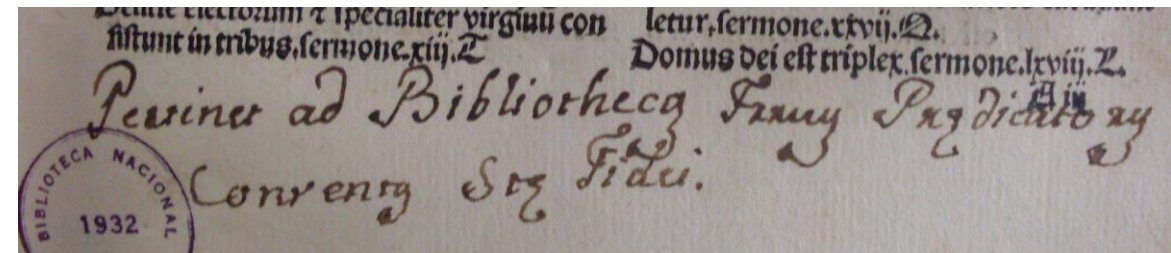 Delitie electorum ⁊ specialiter virginū con
sistunt in tribus.sermone.xiij.T
letur,sermone.xxvij.Q.
Domus dei est triplex.sermone.lxviij.L.
A iij
Pertinet ad Bibliothecą Fratrų Prędicatorų
Conventų Stę Fidei.
BIBLIOTECA NACIONAL
1932